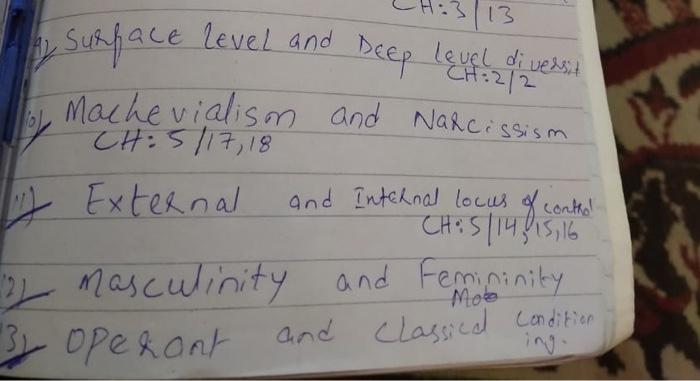 CH:3/13
9) Surface level and Deep level diversit
CH:2/2
10) Machevialism and Narcissism
CH:5/17,18
11) External and Internal locus of control
CH:5/14,15,16
12) Masculinity and Femininity
13) Operant and Classical Condition
ing.